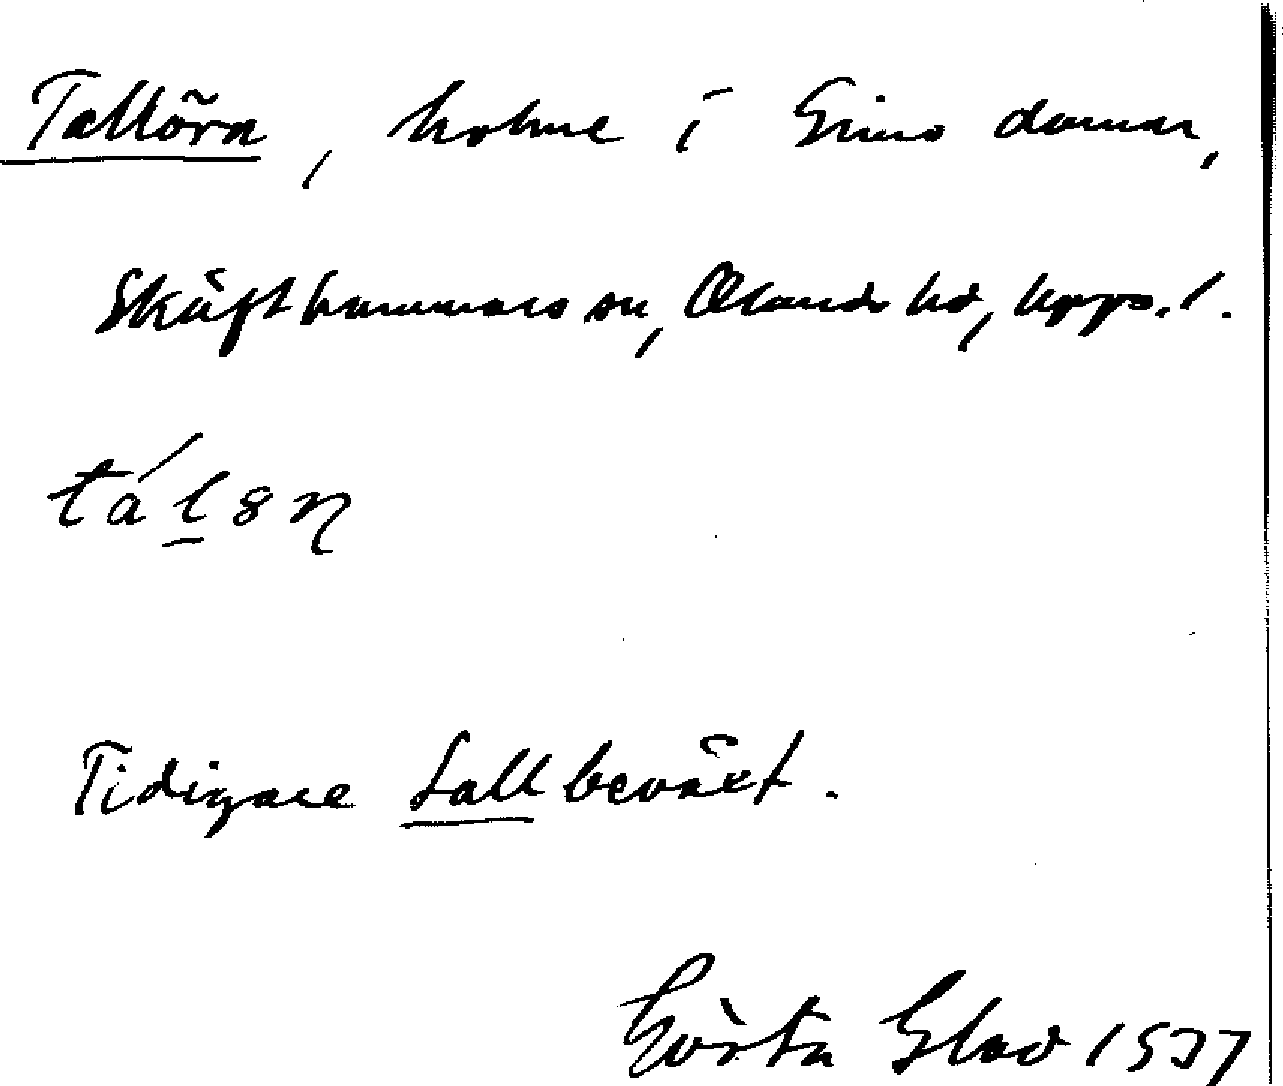 Tallörn, holme i Gimo damm,
Skäfthammars sn, Olands hd, Upps. l.
Tidigare tallbeväxt.
Gösta Glad 1937